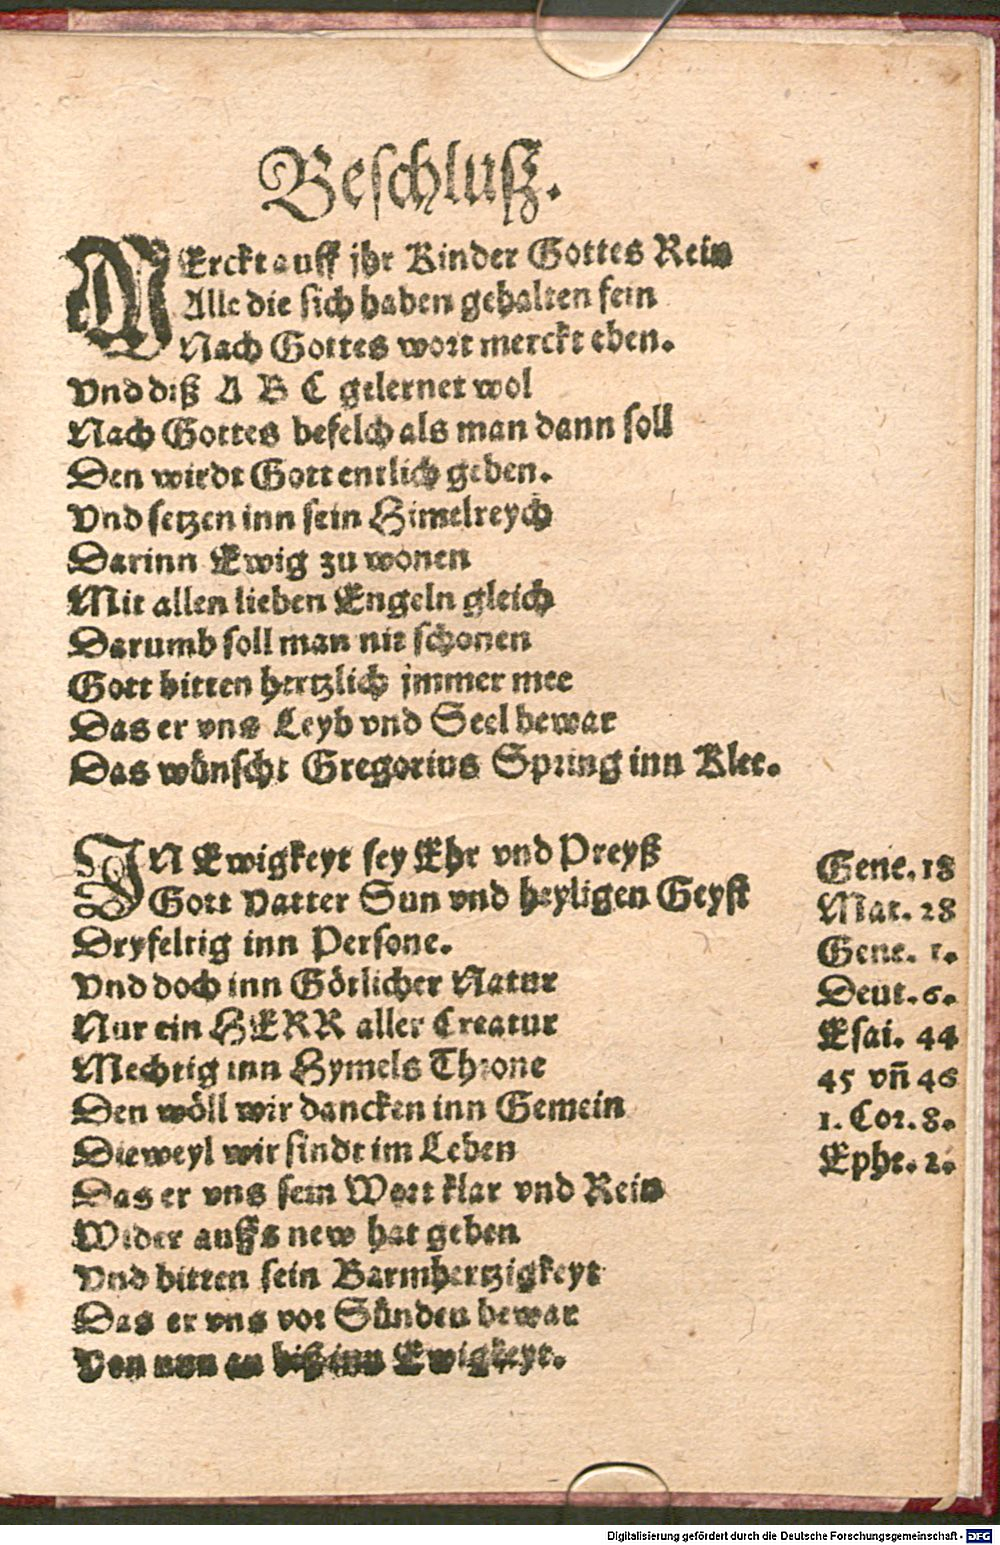 Beschluß.
MErckt auff jhr Kinder Gottes Rein
Alle die sich haben gehalten fein
Nach Gottes wort merckt eben.
Vnd diß A B C gelernet wol
Nach Gottes befelch als man dann soll
Den wirdt Gott entlich geben.
Vnd setzen inn sein Himelreych
Darinn Ewig zu wonen
Mit allen lieben Engeln gleich
Darumb soll man nit schonen
Gott bitten hertzlich jmmer mee
Das er vns Leyb vnd Seel bewar
Das wünscht Gregorius Spring inn Klee.
IN Ewigkeyt sey Ehr vnd Preyß
Gott Vatter Sun vnd heyligen Geyst
Dryfeltig inn Persone.
Vnd doch inn Götlicher Natur
Nur ein HERR aller Creatur
Mechtig inn Hymels Throne
Den wöll wir dancken inn Gemein
Dieweyl wir sindt im Leben
Das er vns sein Wort klar vnd Rein
Wider auffs new hat geben
Vnd bitten sein Barmhertzigkeyt
Das er vns vor Sünden bewar
Von nun an biß inn Ewigkeyt.
Gene. 18
Mat. 28
Gene. 1.
Deut. 6.
Esai. 44
45 vñ 46
1. Cor. 8.
Ephe. 2.
Digitalisierung gefördert durch die Deutsche Forschungsgemeinschaft - DFG